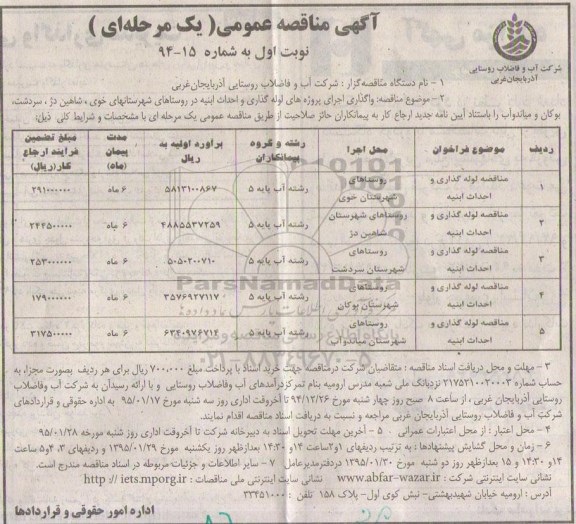 آگهی مناقصه عمومی( یک مرحله‌ای )
نوبت اول به شماره ۱۵-۹۴
شرکت آب و فاضلاب روستایی
آذربایجان‌غربی
۱ - نام دستگاه مناقصه‌گزار : شرکت آب و فاضلاب روستایی آذربایجان‌غربی
۲ - موضوع مناقصه: واگذاری اجرای پروژه های لوله گذاری و احداث ابنیه در روستاهای شهرستانهای خوی ، شاهین دژ ، سردشت،
بوکان و میاندوآب را باستناد آیین نامه جدید ارجاع کار به پیمانکاران حائز صلاحیت از طریق مناقصه عمومی یک مرحله ای با مشخصات و شرایط کلی ذیل:
ردیف موضوع فراخوان محل اجرا رشته و گروه پیمانکاران برآورد اولیه به ریال مدت پیمان (ماه) مبلغ تضمین فرایند ارجاع کار(ریال)
۱ مناقصه لوله گذاری و احداث ابنیه روستاهای شهرستان خوی رشته آب پایه ۵ ۵۸۱۳۱۰۰۸۶۷ ۶ ماه ۲۹۱۰۰۰۰۰۰
۲ مناقصه لوله گذاری و احداث ابنیه روستاهای شهرستان شاهین دژ رشته آب پایه ۵ ۴۸۸۵۵۳۷۲۵۹ ۶ ماه ۲۴۴۵۰۰۰۰۰
۳ مناقصه لوله گذاری و احداث ابنیه روستاهای شهرستان سردشت رشته آب پایه ۵ ۵۰۵۰۲۰۰۷۱۰ ۶ ماه ۲۵۳۰۰۰۰۰۰
۴ مناقصه لوله گذاری و احداث ابنیه روستاهای شهرستان بوکان رشته آب پایه ۵ ۳۵۷۶۹۲۷۱۱۷ ۶ ماه ۱۷۹۰۰۰۰۰۰
۵ مناقصه لوله گذاری و احداث ابنیه روستاهای شهرستان میاندوآب رشته آب پایه ۵ ۶۳۴۰۹۷۶۷۱۴ ۶ ماه ۳۱۷۵۰۰۰۰۰
ParsNamadData
۰۲۱-۸۸۳۴۹۶۷۰-۵
۳ - مهلت و محل دریافت اسناد مناقصه : متقاضیان شرکت درمناقصه جهت خرید اسناد با پرداخت مبلغ ۷۰۰،۰۰۰ ریال برای هر ردیف بصورت مجزا، به
حساب شماره ۲۱۷۵۲۱۰۰۲۰۰۰۳ نزدبانک ملی شعبه مدرس ارومیه بنام تمرکزدرآمدهای آب وفاضلاب روستایی و با ارائه رسیدآن به شرکت آب وفاضلاب
روستایی آذربایجان غربی ، ازساعت ۸ صبح روز چهار شنبه مورخ ۹۴/۱۲/۲۶ تا آخروقت اداری روز سه شنبه مورخ ۹۵/۰۱/۱۷ به اداره حقوقی و قراردادهای
شرکت آب و فاضلاب روستایی آذربایجان غربی مراجعه و نسبت به دریافت اسناد مناقصه اقدام نمایند.
۴ - محل اعتبار : از محل اعتبارات عمرانی ۵ - آخرین مهلت تحویل اسناد به دبیرخانه شرکت تا آخروقت اداری روز شنبه مورخه ۹۵/۰۱/۲۸
۶ - زمان و محل گشایش پیشنهادها : به ترتیب ردیفهای ۱و۲ساعت ۱۴و ۱۴:۳۰ بعدازظهر روز یکشنبه مورخ ۱۳۹۵/۰۱/۲۹ و ردیفهای ۳، ۴و۵ ساعت
۱۴و ۱۴:۳۰ و ۱۵ بعدازظهر روز دو شنبه مورخ ۱۳۹۵/۰۱/۳۰ دردفترمدیرعامل ۷ - سایر اطلاعات و جزئیات مربوطه در اسناد مناقصه مندرج است.
نشانی سایت اینترنتی شرکت : www.abfar-wazar.ir نشانی سایت اینترنتی ملی مناقصات : http://iets.mporg.ir
آدرس : ارومیه خیابان شهیدبهشتی- نبش کوی اول- پلاک ۱۵۸ تلفن : ۳۳۴۵۱۰۰۰
اداره امور حقوقی و قراردادها